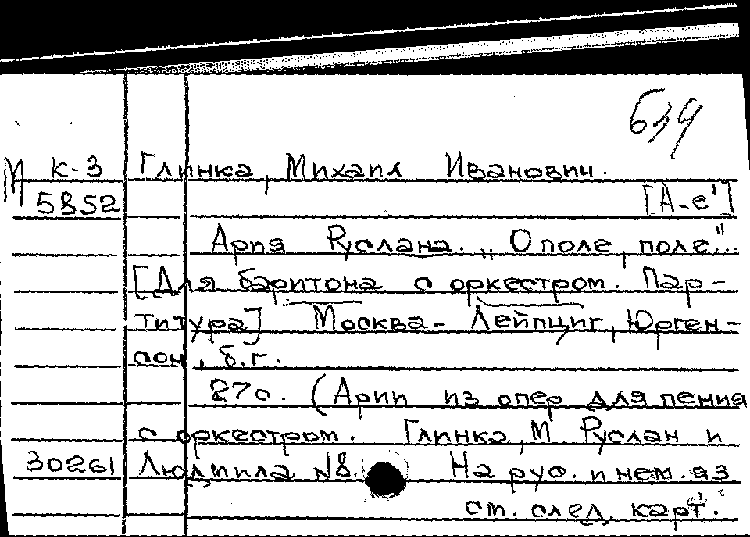 639
М К-3 Глинка, Михаил Иванович.
5852 [А-е']
Ария Руслана. „О поле, поле"...
[Для баритона с оркестром. Пар-
титура] Москва - Лейпциг, Юрген-
сон, б.г.
27с. (Арии из опер для пения
с оркестром. Глинка, М. Руслан и
30261 Людмила №8. На рус. и нем. яз
см. след. карт.